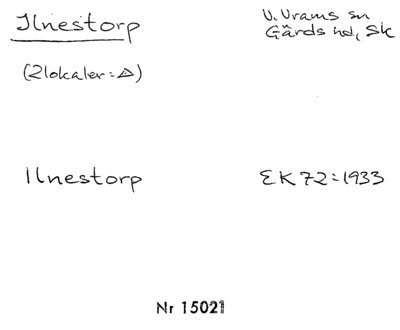 Ilnestorp
V. Vrams sn
Gärds hd, Sk
(2 lokaler = △)
Ilnestorp
EK 72 = 1933
Nr 15021